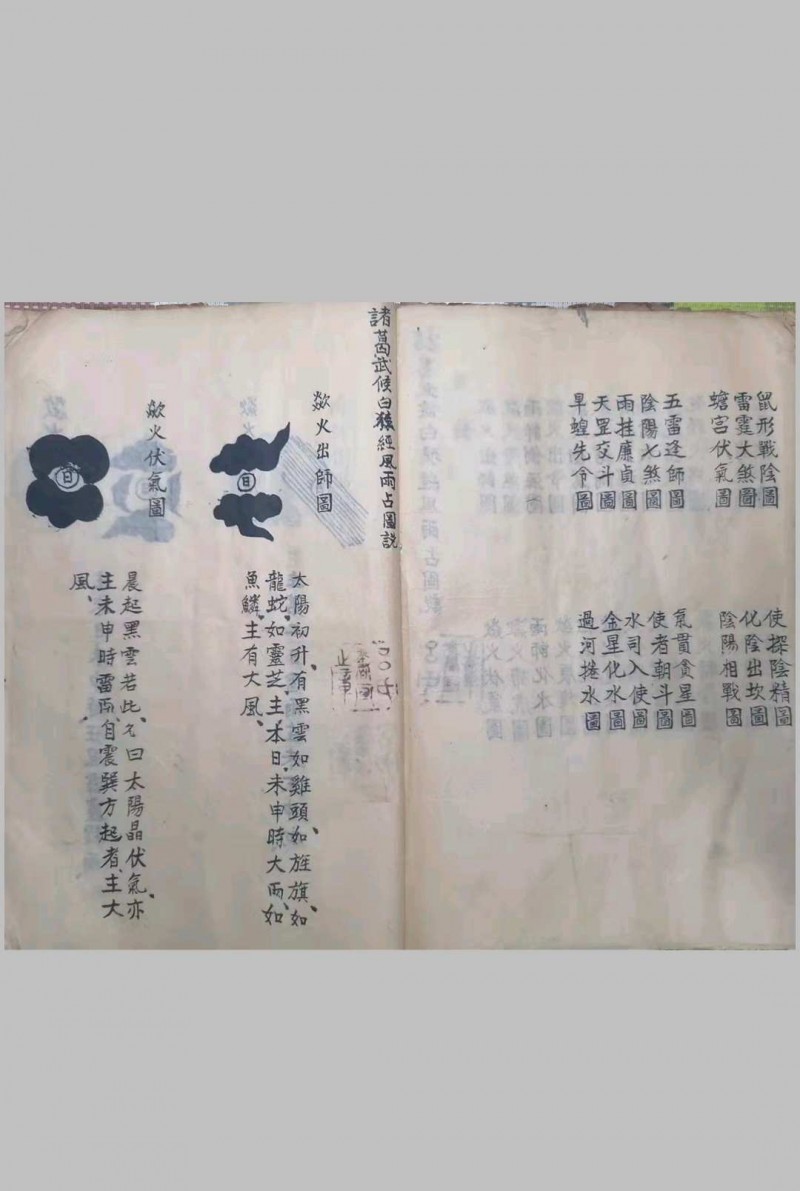 鼠形戰陰圖
雷霆大煞圖
蟾宮伏氣圖
五雷逢師圖
陰陽七煞圖
雨挂廉貞圖
天罡交斗圖
旱蝗先令圖
使探陰精圖
化陰出坎圖
陰陽相戰圖
氣貫貪星圖
使者朝斗圖
水司入使圖
金星化水圖
過河捲水圖
諸葛武候白猿經風雨占圖説
欻火出師圖
日
太陽初升、有黑雲如雞頭、如旌旗、如
龍蛇、如靈芝、主本日、未申時大雨、如
魚鱗、主有大風、
欻火伏氣圖
日
晨起黑雲若此、久曰太陽晶伏氣、亦
主未申時雷雨、自震巽方起者、主大
風、